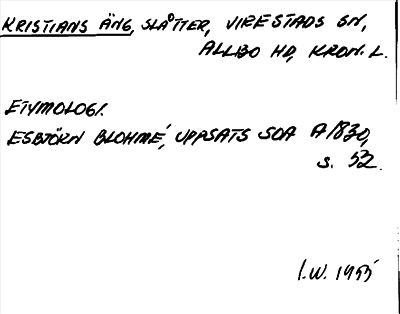 KRISTIANS ÄNG, SLÅTTER, VIRESTADS SN,
ALLBO HD, KRON. L.
ETYMOLOGI.
ESBJÖRN BLOHMÉ, UPPSATS SOA A1830,
s. 52.
I.W. 1955